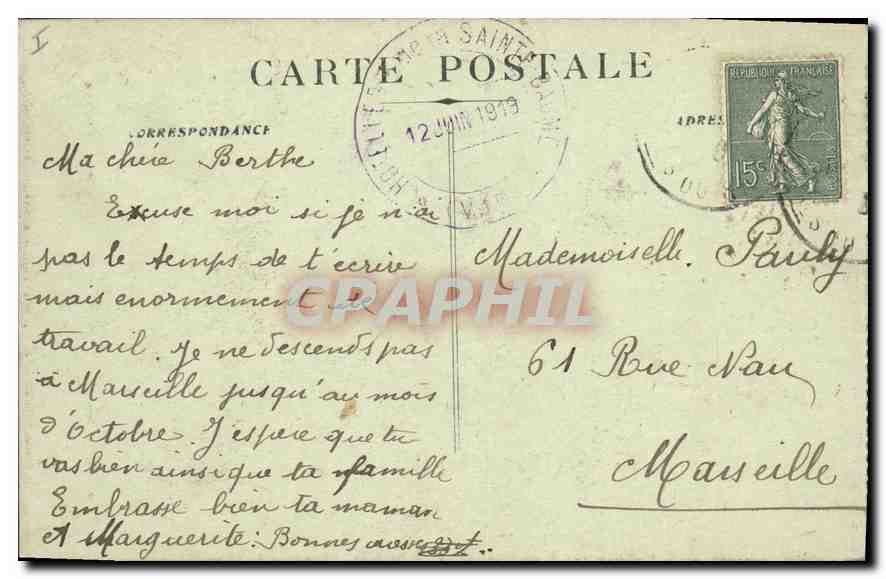 I
CARTE POSTALE
CORRESPONDANCE
HOTELLERIE de la SAINTE BAUME
12 JUIN 1919
(VAR)
ADRES
REPUBLIQUE FRANÇAISE
15c
Ma chère Berthe
Excuse moi si je n'ai
pas le temps de t'écrire
mais enormement de
travail. Je ne descends pas
à Marseille jusqu'au mois
d'Octobre. J'espère que tu
vas bien ainsi que ta famille
Embrasse bien ta maman
et Marguerite: Bonnes
Mademoiselle. Pauly
61 Rue Nau
Marseille
CPAPHIL